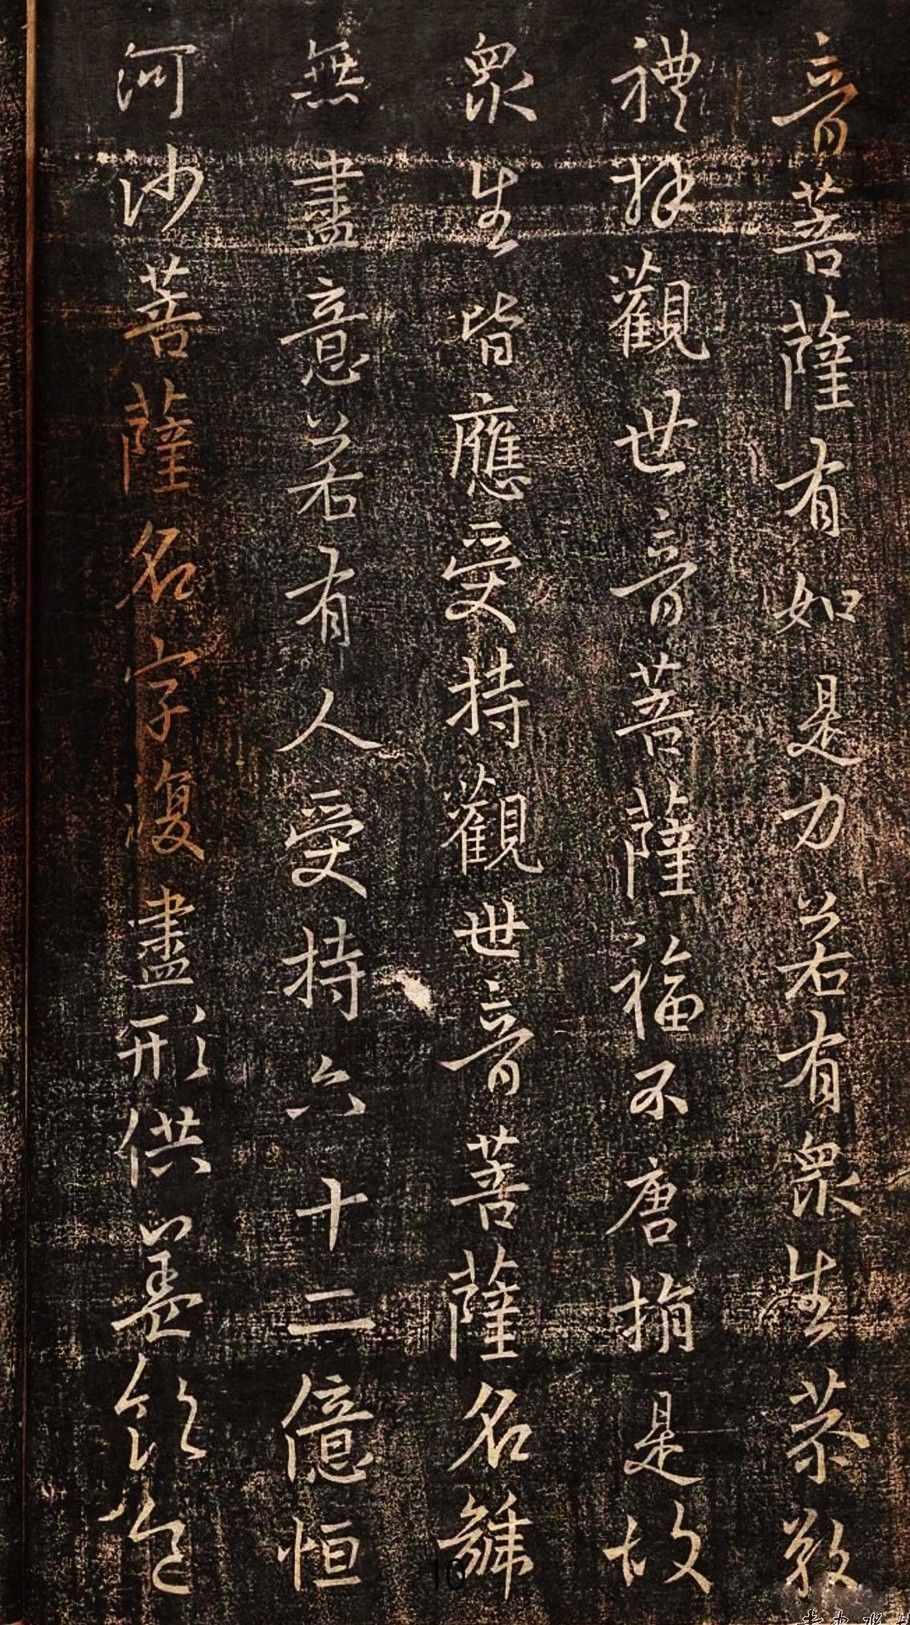 音菩薩有如是力若有眾生恭敬
禮拜觀世音菩薩福不唐捐是故
眾生皆應受持觀世音菩薩名號
無盡意若有人受持六十二億恒
河沙菩薩名字復盡形供養飲食